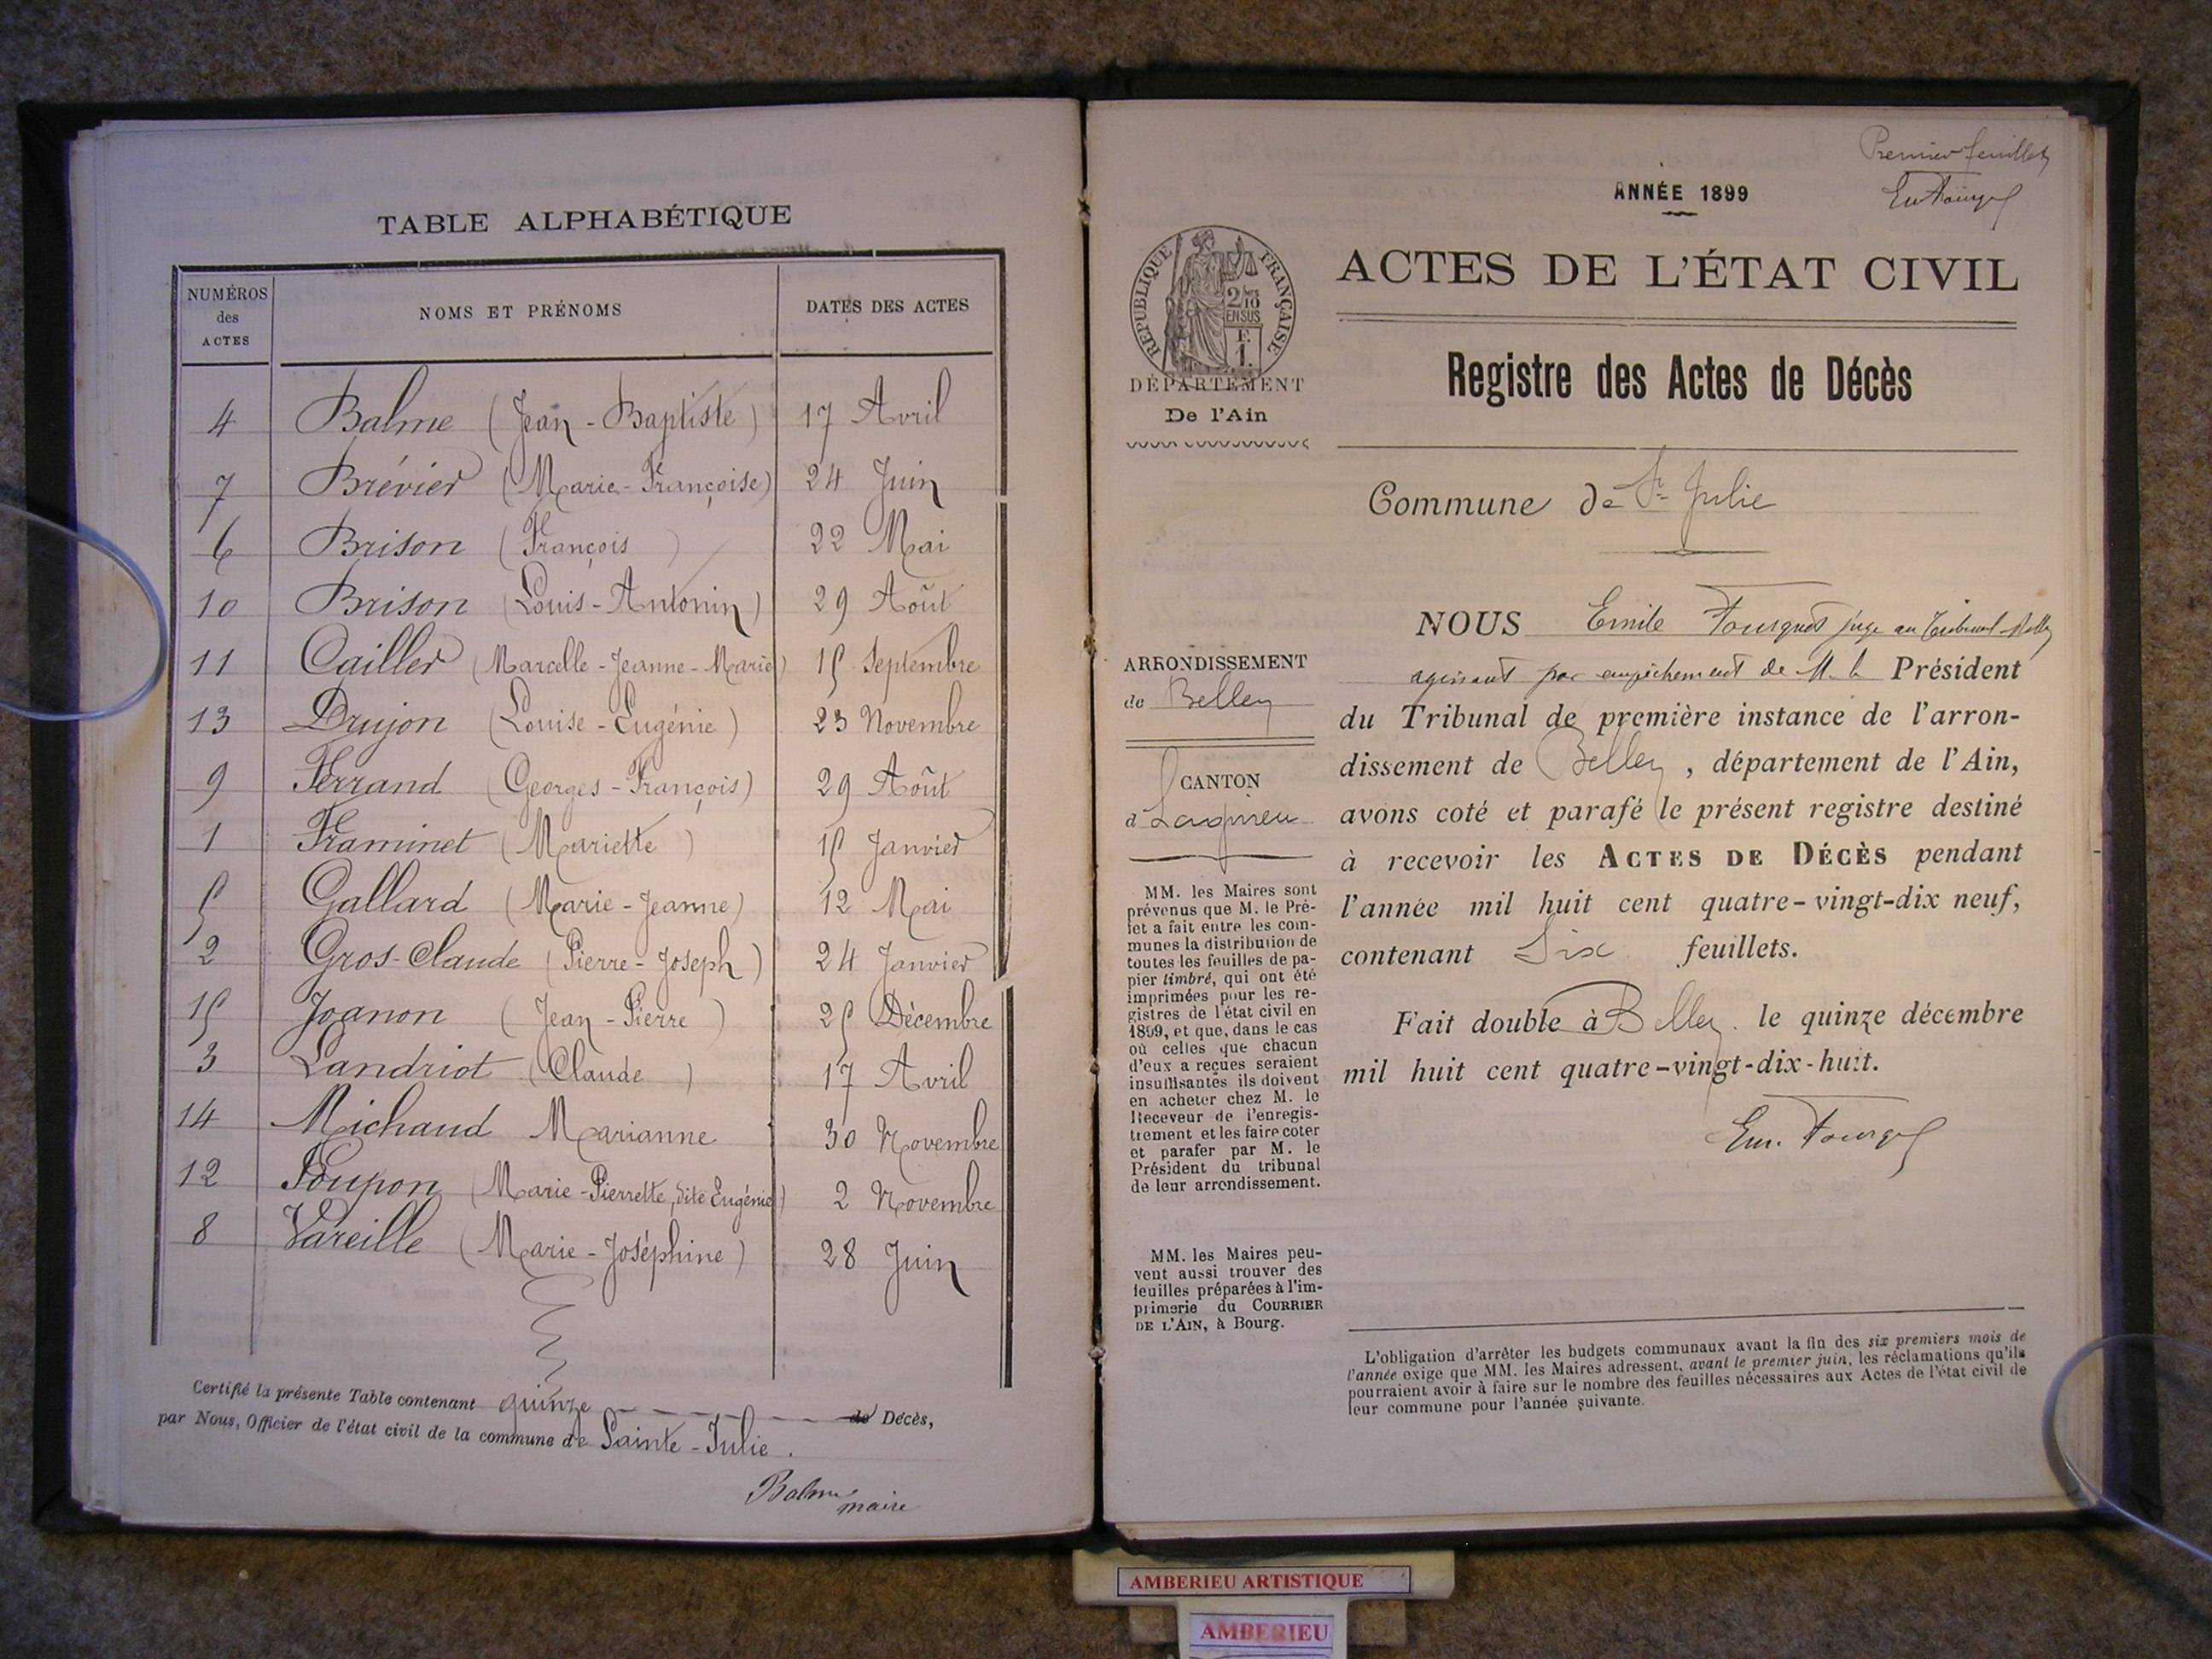 TABLE ALPHABÉTIQUE
NUMÉROS des ACTES
NOMS ET PRÉNOMS
DATES DES ACTES
4 Balme (Jean-Baptiste) 17 Avril
7 Brévier (Marie-Françoise) 24 Juin
6 Brison (François) 22 Mai
10 Brison (Louis-Antonin) 29 Août
11 Cailler (Marcelle-Jeanne-Marie) 15 Septembre
13 Drujon (Louise-Eugénie) 23 Novembre
9 Ferrand (Georges-François) 29 Août
1 Framinet (Mariette) 15 Janvier
5 Gallard (Marie-Jeanne) 12 Mai
2 Gros-Claude (Pierre-Joseph) 24 Janvier
15 Joanon (Jean-Pierre) 25 Décembre
3 Landriot (Claude) 17 Avril
14 Michaud Marianne 30 Novembre
12 Poupon (Marie-Pierrette, dite Eugénie) 2 Novembre
8 Vareille (Marie-Joséphine) 28 Juin
Certifié la présente Table contenant quinze de Décès,
par Nous, Officier de l'état civil de la commune de Sainte-Julie.
Balme
maire
Premier feuillet
ANNÉE 1899
ACTES DE L'ÉTAT CIVIL
RÉPUBLIQUE FRANÇAISE
2/10
EN SUS
F.
1.
DÉPARTEMENT
De l'Ain
Registre des Actes de Décès
Commune de Ste Julie
ARRONDISSEMENT
de Belley
CANTON
d Lagnieu
MM. les Maires sont
prévenus que M. le Pré-
fet a fait entre les com-
munes la distribution de
toutes les feuilles de pa-
pier timbré, qui ont été
imprimées pour les re-
gistres de l'état civil en
1899, et que, dans le cas
où celles que chacun
d'eux a reçues seraient
insuffisantes ils doivent
en acheter chez M. le
Receveur de l'enregis-
trement et les faire coter
et parafer par M. le
Président du tribunal
de leur arrondissement.
MM. les Maires peu-
vent aussi trouver des
feuilles préparées à l'im-
primerie du COURRIER
DE L'AIN, à Bourg.
NOUS Emile Fourquet juge au Tribunal
agissant par empêchement de M. le Président
du Tribunal de première instance de l'arron-
dissement de Belley, département de l'Ain,
avons coté et parafé le présent registre destiné
à recevoir les ACTES DE DÉCÈS pendant
l'année mil huit cent quatre-vingt-dix neuf,
contenant Six feuillets.
Fait double à Belley le quinze décembre
mil huit cent quatre-vingt-dix-huit.
L'obligation d'arrêter les budgets communaux avant la fin des six premiers mois de
l'année exige que MM. les Maires adressent, avant le premier juin, les réclamations qu'ils
pourraient avoir à faire sur le nombre des feuilles nécessaires aux Actes de l'état civil de
leur commune pour l'année suivante.
AMBERIEU ARTISTIQUE
AMBERIEU